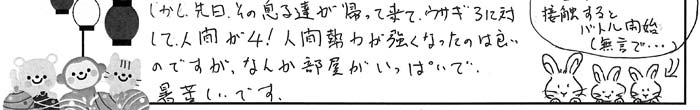 しかし、先日、その息子達が帰って来て、ウサギ3に対
して、人間が4！人間勢力が強くなったのは良い
のですが、なんか部屋がいっぱいで、
暑苦しいです。
接触すると
バトル開始
(無言で…)